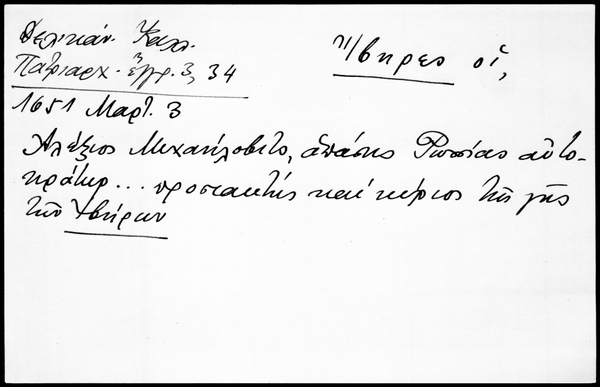 Δελικάν. Καλ.
Πατριαρχ. ἔγγρ. 3, 34
Ἴβηρες οἱ,
1651 Μαρτ. 3
Ἀλέξιος Μιχαήλοβιτς, ἁπάσης Ρωσσίας αὐτο-
κράτωρ... προστακτής καί κύριος τῆς γῆς
τῶν Ἰβήρων